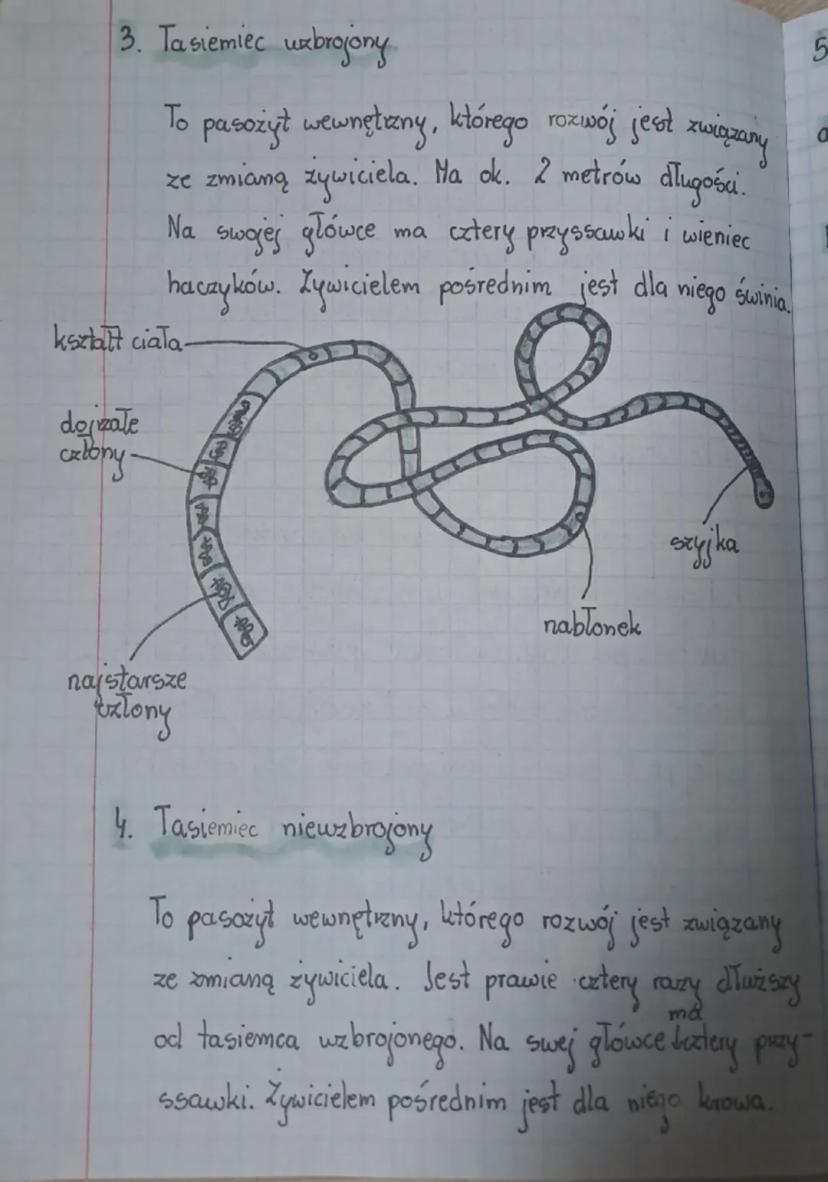 3. Tasiemiec uzbrojony
To pasożyt wewnętrzny, którego rozwój jest związany
ze zmianą żywiciela. Ma ok. 2 metrów długości.
Na swojej główce ma cztery przyssawki i wieniec
haczyków. Żywicielem pośrednim jest dla niego świnia.
kształt ciała
dojrzałe
człony
szyjka
nabłonek
najstarsze
człony
4. Tasiemiec nieuzbrojony
To pasożyt wewnętrzny, którego rozwój jest związany
ze zmianą żywiciela. Jest prawie cztery razy dłuższy
od tasiemca uzbrojonego. Na swej główce ma cztery przy-
ssawki. Żywicielem pośrednim jest dla niego krowa.
5